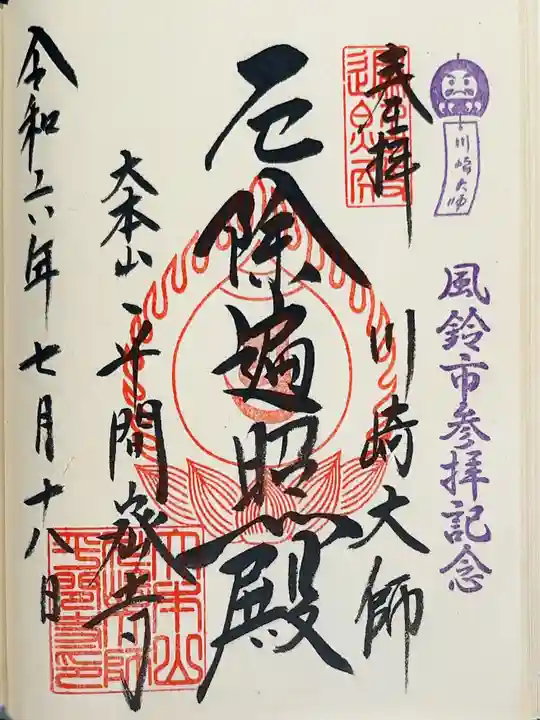 川崎大師
風鈴市参拝記念
奉拝
川崎大師
厄除遍照殿
大本山 平間寺
令和六年七月十八日